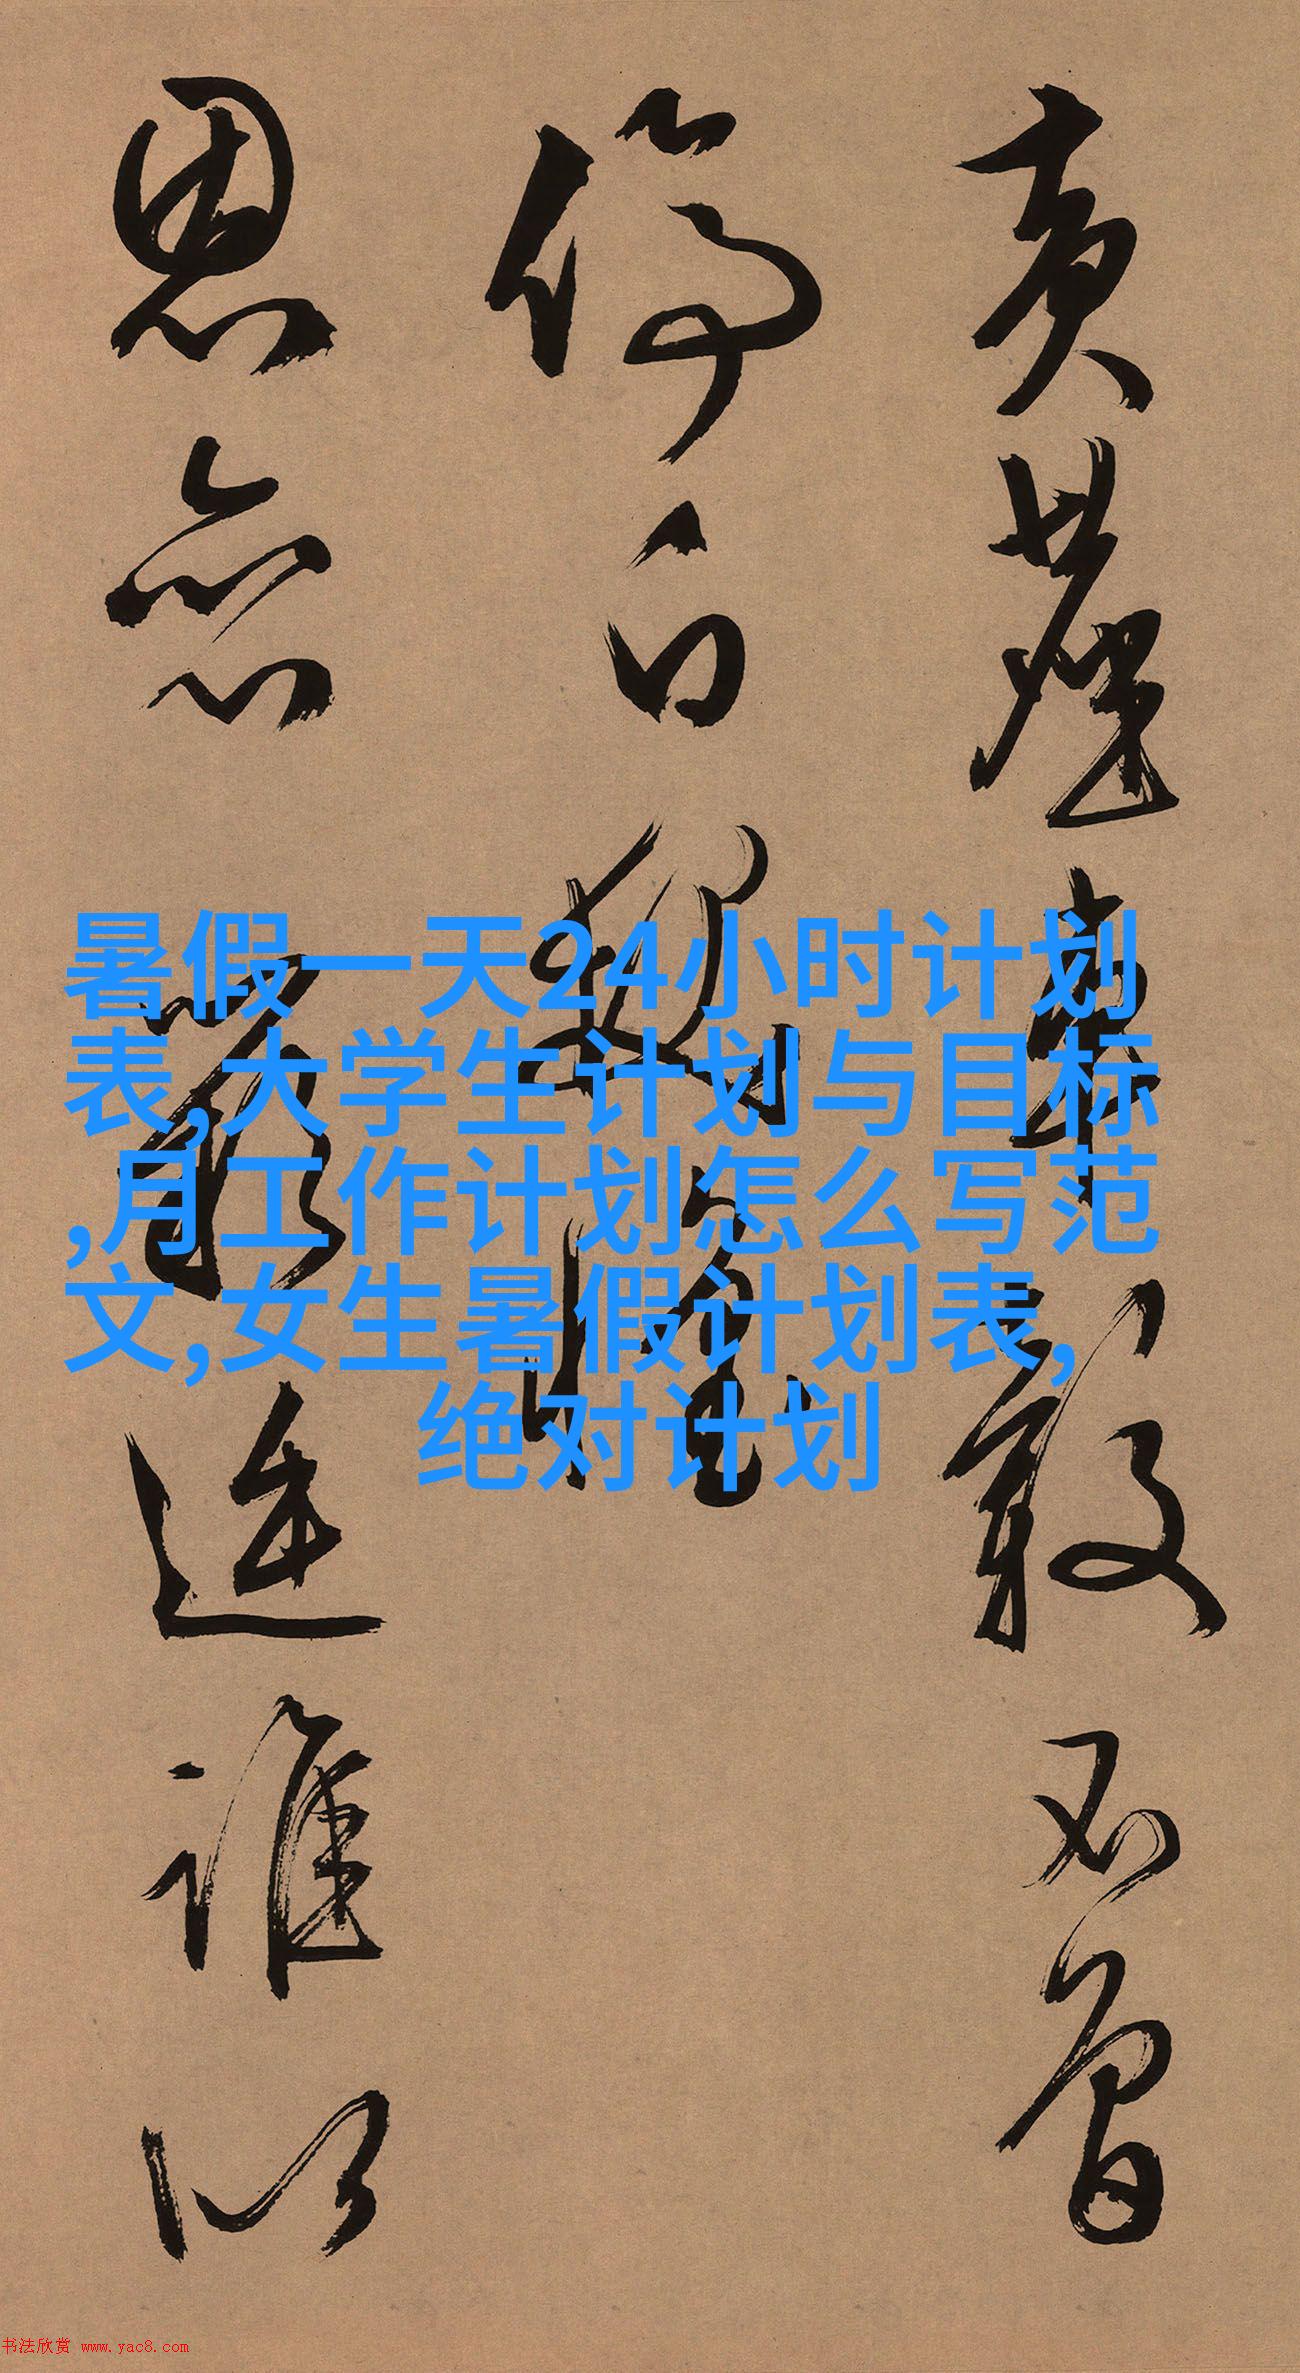 黄塵車轂不曾
停白
恩誰以
暑假一天24小时计划
表,大学生计划与目标
,月工作计划怎么写范
文,女生暑假计划表,
绝对计划
书法欣赏 www.yac8.com